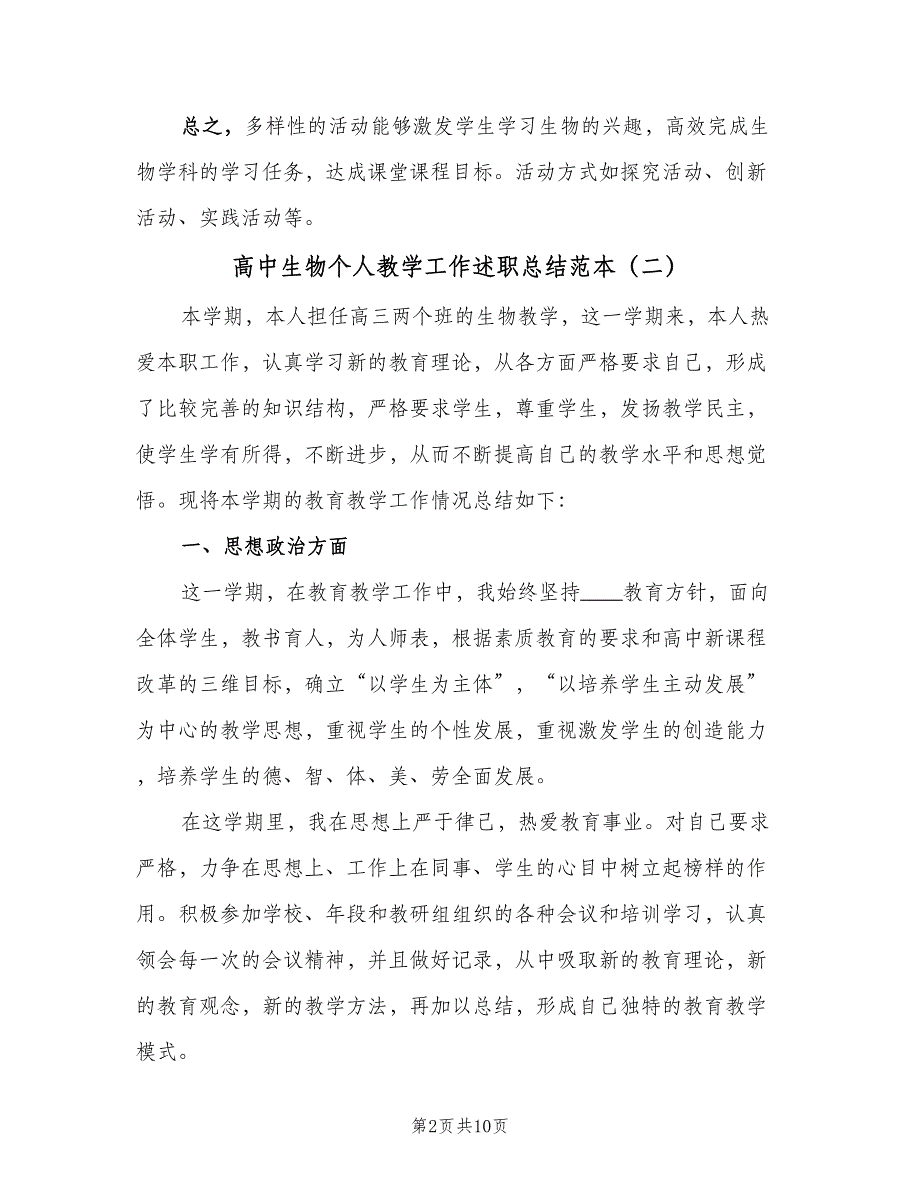 总之，多样性的活动能够激发学生学习生物的兴趣，高效完成生
物学科的学习任务，达成课堂课程目标。活动方式如探究活动、创新
活动、实践活动等。
高中生物个人教学工作述职总结范本（二）
本学期，本人担任高三两个班的生物教学，这一学期来，本人热
爱本职工作，认真学习新的教育理论，从各方面严格要求自己，形成
了比较完善的知识结构，严格要求学生，尊重学生，发扬教学民主，
使学生学有所得，不断进步，从而不断提高自己的教学水平和思想觉
悟。现将本学期的教育教学工作情况总结如下：
一、思想政治方面
这一学期，在教育教学工作中，我始终坚持____教育方针，面向
全体学生，教书育人，为人师表，根据素质教育的要求和高中新课程
改革的三维目标，确立“以学生为主体”，“以培养学生主动发展”
为中心的教学思想，重视学生的个性发展，重视激发学生的创造能力
，培养学生的德、智、体、美、劳全面发展。
在这学期里，我在思想上严于律己，热爱教育事业。对自己要求
严格，力争在思想上、工作上在同事、学生的心目中树立起榜样的作
用。积极参加学校、年段和教研组组织的各种会议和培训学习，认真
领会每一次的会议精神，并且做好记录，从中吸取新的教育理论，新
的教育观念，新的教学方法，再加以总结，形成自己独特的教育教学
模式。
第2页共10页